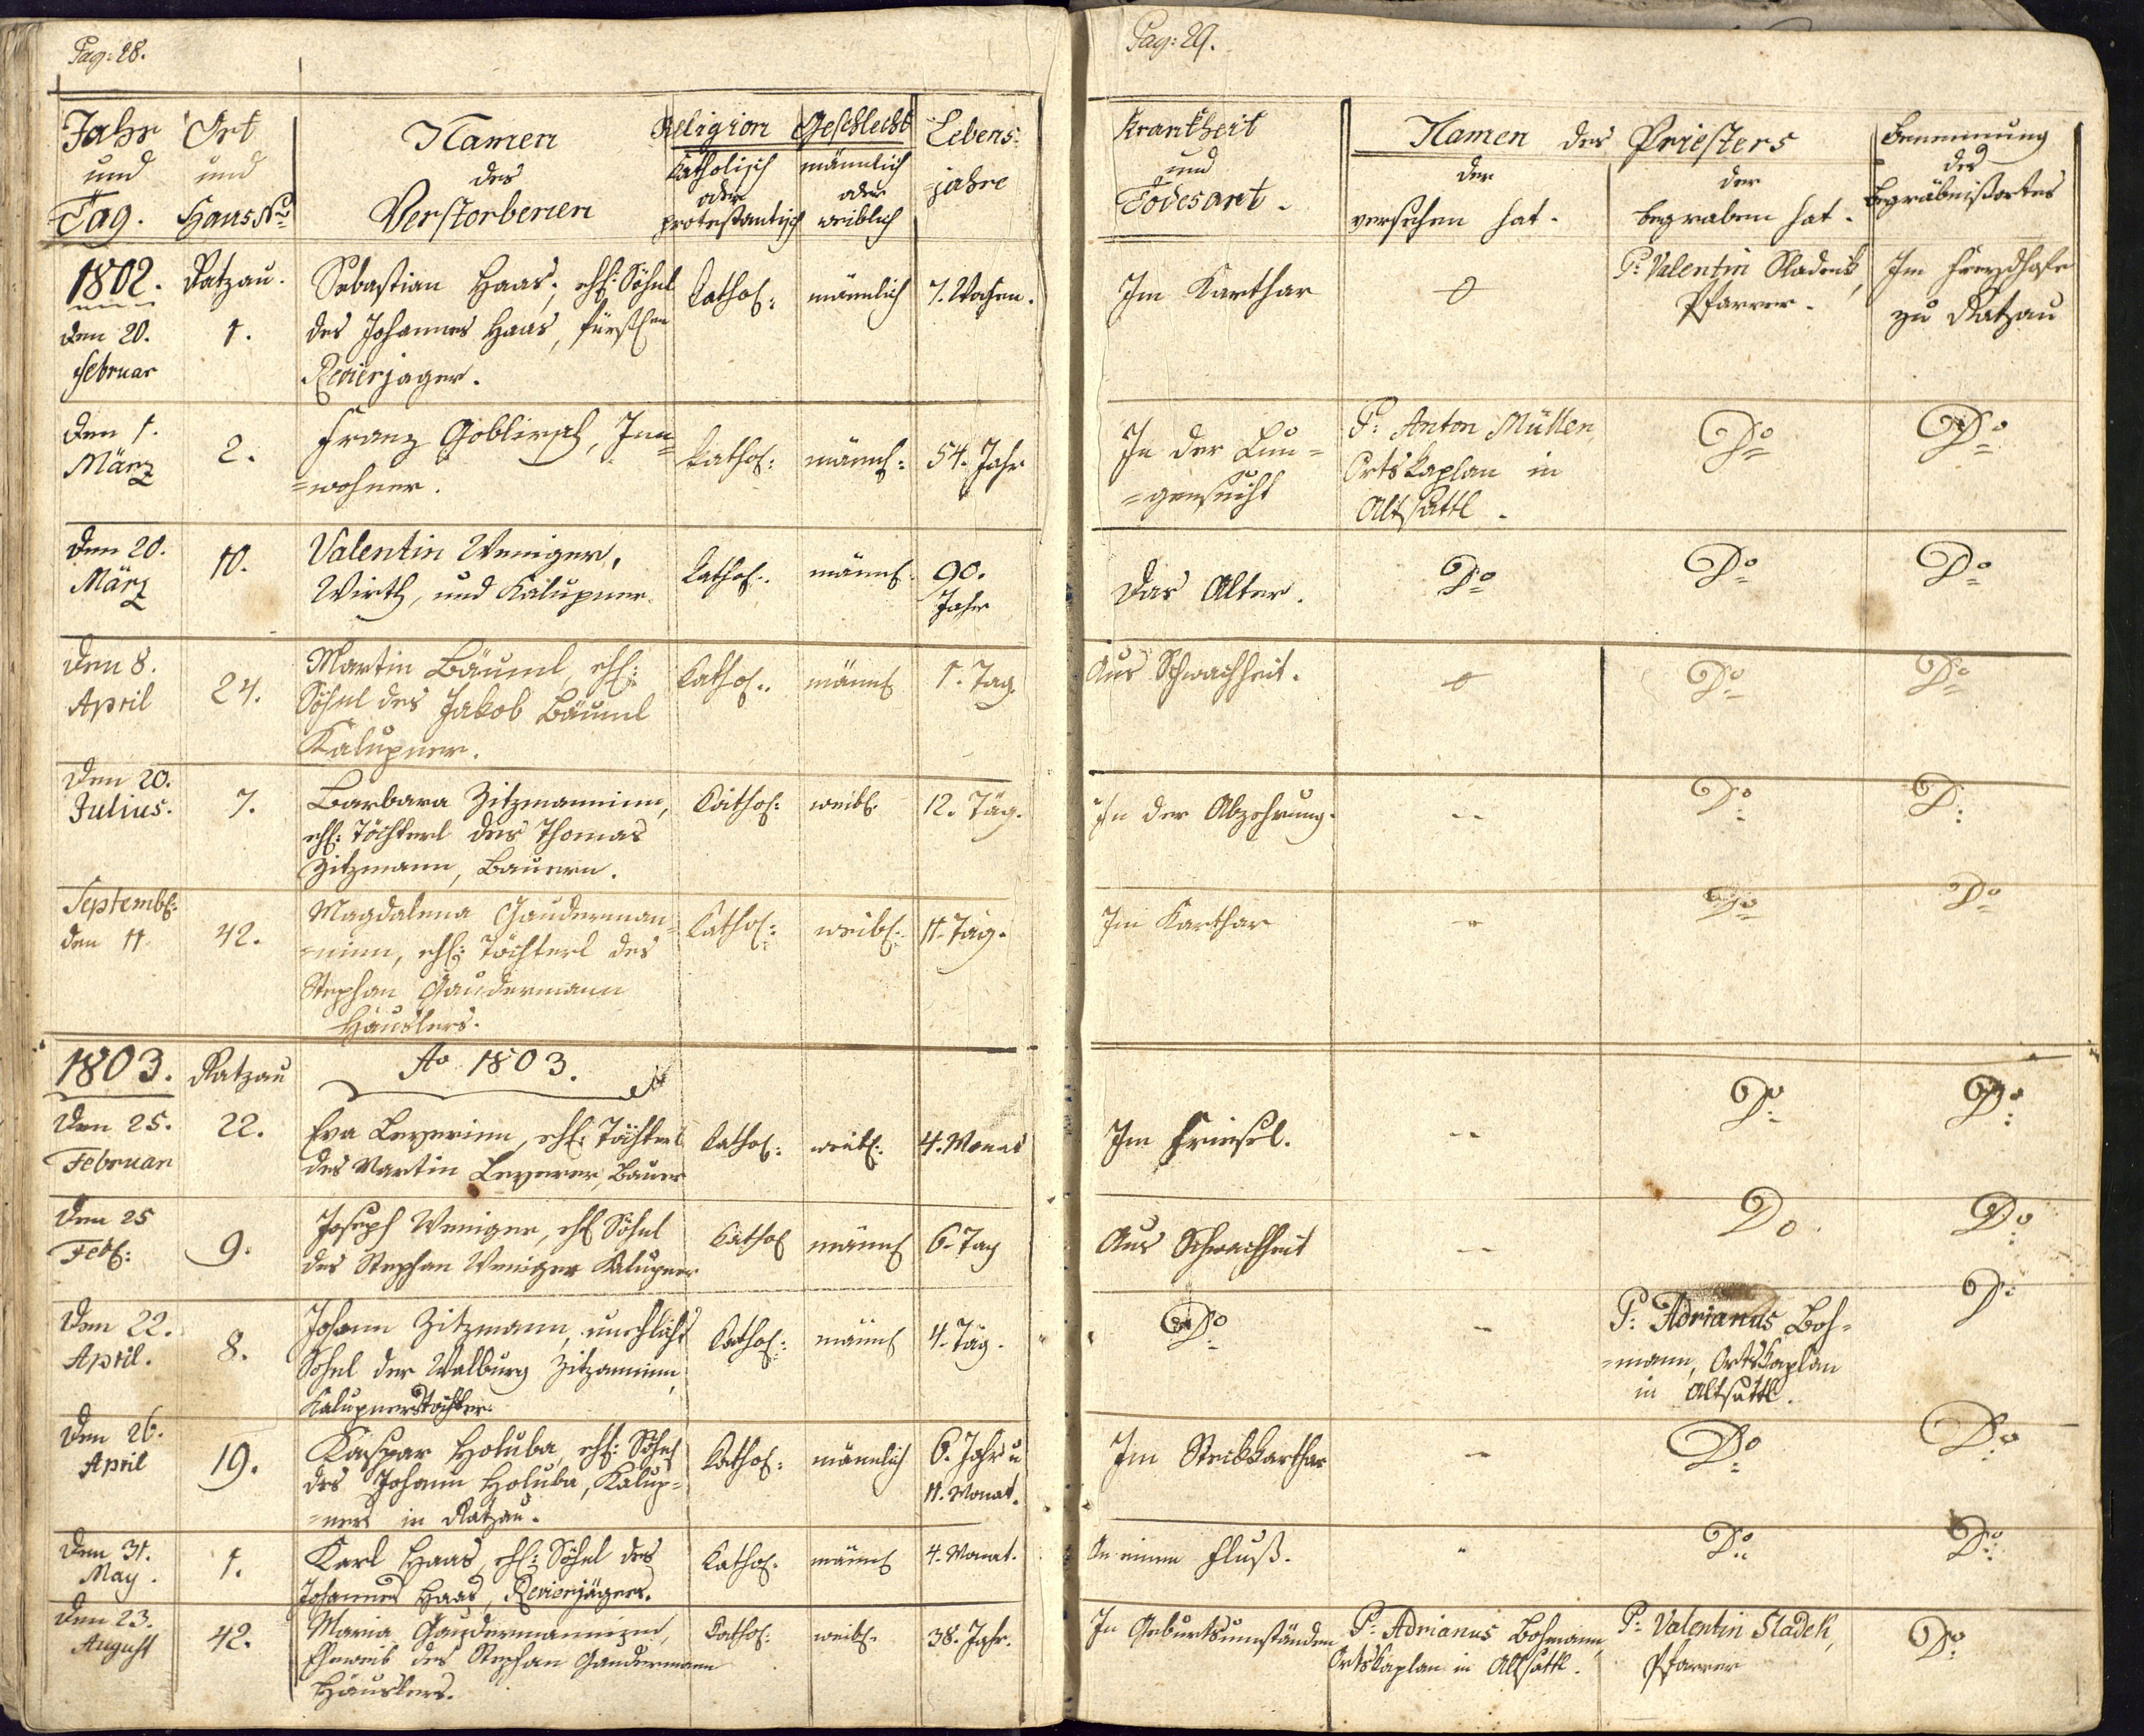 Pag: 28.
Jahr und Tag.
Ort und Haus Nro
Namen des Verstorbenen
Religion
Katholisch oder protestantisch
Geschlecht
männlich oder weiblich
Lebens-
jahre
1802.
Ratzau.
den 20.
Februar
1.
Sebastian Haas, ehl: Söhnl
des Johannes Haas, fürstlen
Revierjager.
Kathol:
männlich
7. Wochen.
den 1.
März
2.
Franz Goblirsch, Inn=
=wohner.
Kathol:
männl:
54. Jahr
den 20.
März
10.
Valentin Weniger,
Wirth, und Kalupner.
Kathol:
männl:
90.
Jahr
den 8.
April
24.
Martin Bäuml, ehl:
Söhnl des Jakob Bäuml
Kalupner.
Kathol:
männl
1. Tag
den 20.
Julius.
7.
Barbara Zitzmaninn,
ehl: Töchterl des Thomas
Zitzmann, Bauern.
Kathol:
weibl.
12. Täg.
Septembl:
den 11
42.
Magdalena Gauderman=
=ninn, ehl: Töchterl des
Stephan Gaudermann
Häuslers.
Kathol:
weibl:
11. Täg.
1803.
Ratzau
Ao 1803.
den 25.
Februar
22.
Eva Beyerinn, ehl: Töchterl
des Martin Beyerer, Bauer
Kathol:
weibl:
4. Monat
den 25
Febl:
9.
Joseph Weniger, ehl Söhnl
des Stephan Weniger Kalupner
Kathol
männl
6. Tag
den 22.
April.
8.
Johann Zitzmann, unehlichs
Söhnl der Walburg Zitzaninn,
Kalupnerstochter.
Kathol:
männl
4. Täg.
den 26.
April
19.
Kaspar Holuba, ehl: Söhnl
des Johann Holuba, Kalup=
=ners in Ratzau.
Kathol:
männlich
6. Jahr u
11. Monat.
den 31.
May.
1.
Karl Haas, ehl: Söhnl des
Johannes Haas, Revierjägers.
Kathol:
männl
4. Monat.
den 23.
August
42.
Maria Gaudermanninn,
Eheweib des Stephan Gaudermann
Häuslers.
Kathol:
weibl.
38. Jahr.
Pag: 29.
Krankheit und Todesart.
Namen des Priesters
der versehen hat.
der begraben hat.
Benennung des Begräbnißortes
Im Karthar
0
P: Valentin Sladek,
Pfarrer.
Im Freydhofe
zu Ratzau
In der Lun=
=gensucht
P: Anton Müller,
Ortskaplan in
Altsattl.
Do
Do
Das Alter.
Do
Do
Do
Aus Schwachheit.
0
Do
Do
In der Abzehrung.
--
Do
Do
Im Karthar
-
Do
Do
Im Friesel.
--
Do
Do
Aus Schwachheit
--
Do
Do
Do
-
P: Adrianus Boh=
=mann, Ortskaplan
in Altsattl.
Do
Im Stickkarthar
-
Do
Do
An einem Fluß.
Do
Do
In Geburtsumständen
P: Adrianus Bohmann,
Ortskaplan in Altsattl.
P: Valentin Sladek,
Pfarrer
Do